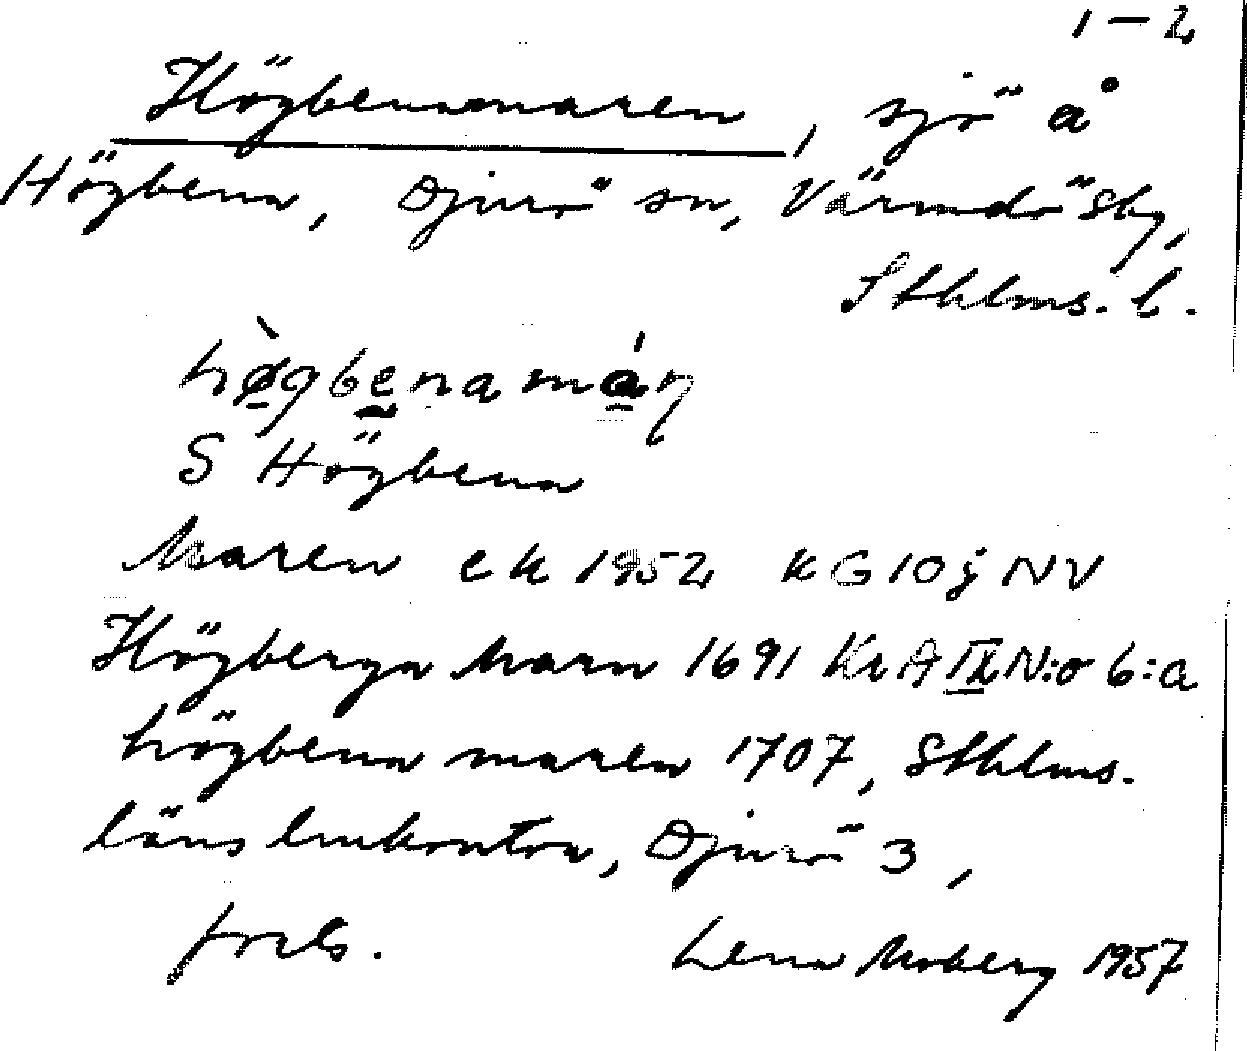 1–2
Högbenamaren, sjö å
Högbena, Djurö sn, Värmdö Sby,
Sthlms. l.
hø̀gbenamán
S Högbena
Maren ek 1952 KG 10j NV
Högberga Marn 1691 KrA IX N:o 6:a
högbena maren 1707, Sthlms.
läns Djurö 3,
forts. Lena Moberg 1957